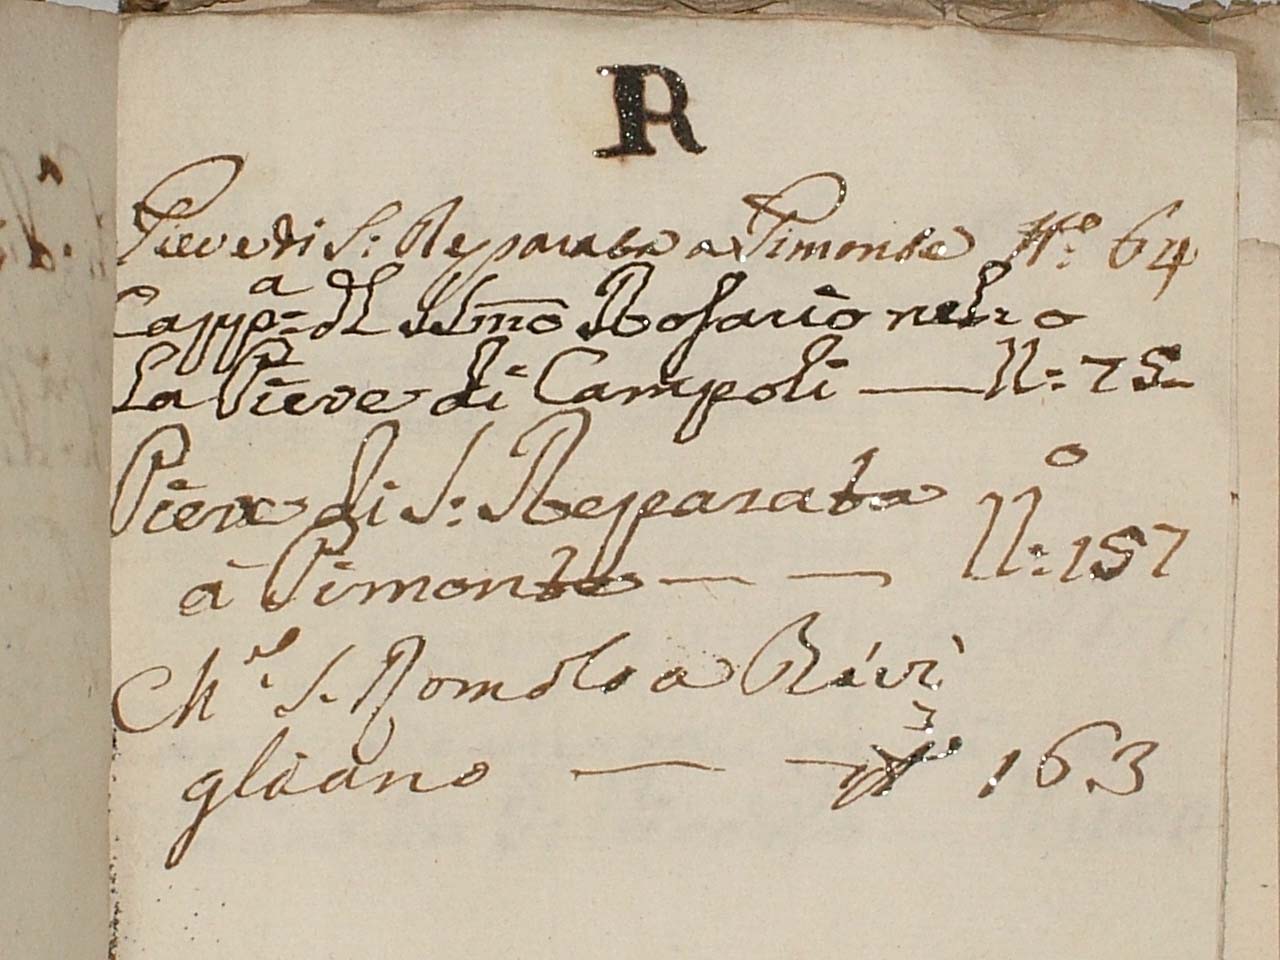 R
Pieve di S: Reparata a Pimonte N.o 64
Capp:a dl SSmo Rosario nel
La Pieve di Campoli — N: 75
Pieve di S: Reparata
à Pimonte — — N:o 157
Ch.a S. Romolo a Ravi
gliano — — No 163